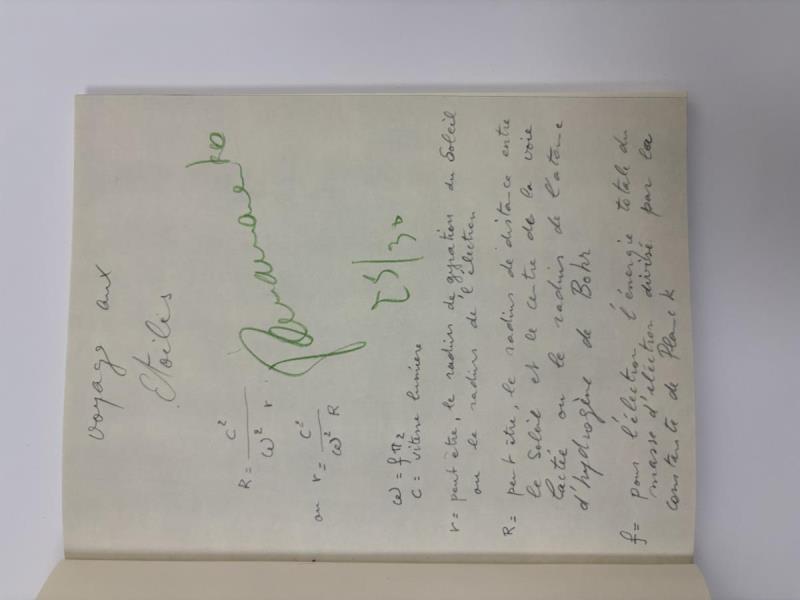 voyage aux
Etoiles
R = c² / ω² r
ou r = c² / ω² R
23/30
ω = f π 2
c = vitesse lumière
r = peut être, le radius de gyration du Soleil
ou le radius de l'électron
R = peut être, le radius de distance entre
le Soleil et le centre de la voie
lactée ou le radius de l'atome
d'hydrogène de Bohr
f = pour l'électron l'énergie totale du
masse d'electron divisé par la
constante de Planck